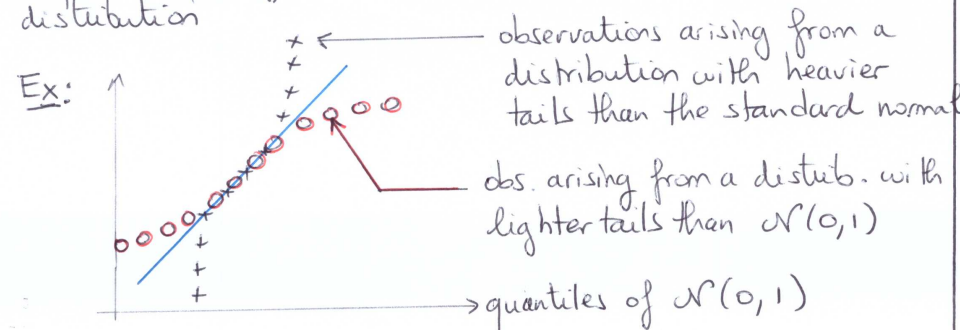 distribution
observations arising from a
Ex:
distribution with heavier
tails than the standard normal
obs. arising from a distrib. with
lighter tails than N(0,1)
quantiles of N(0,1)